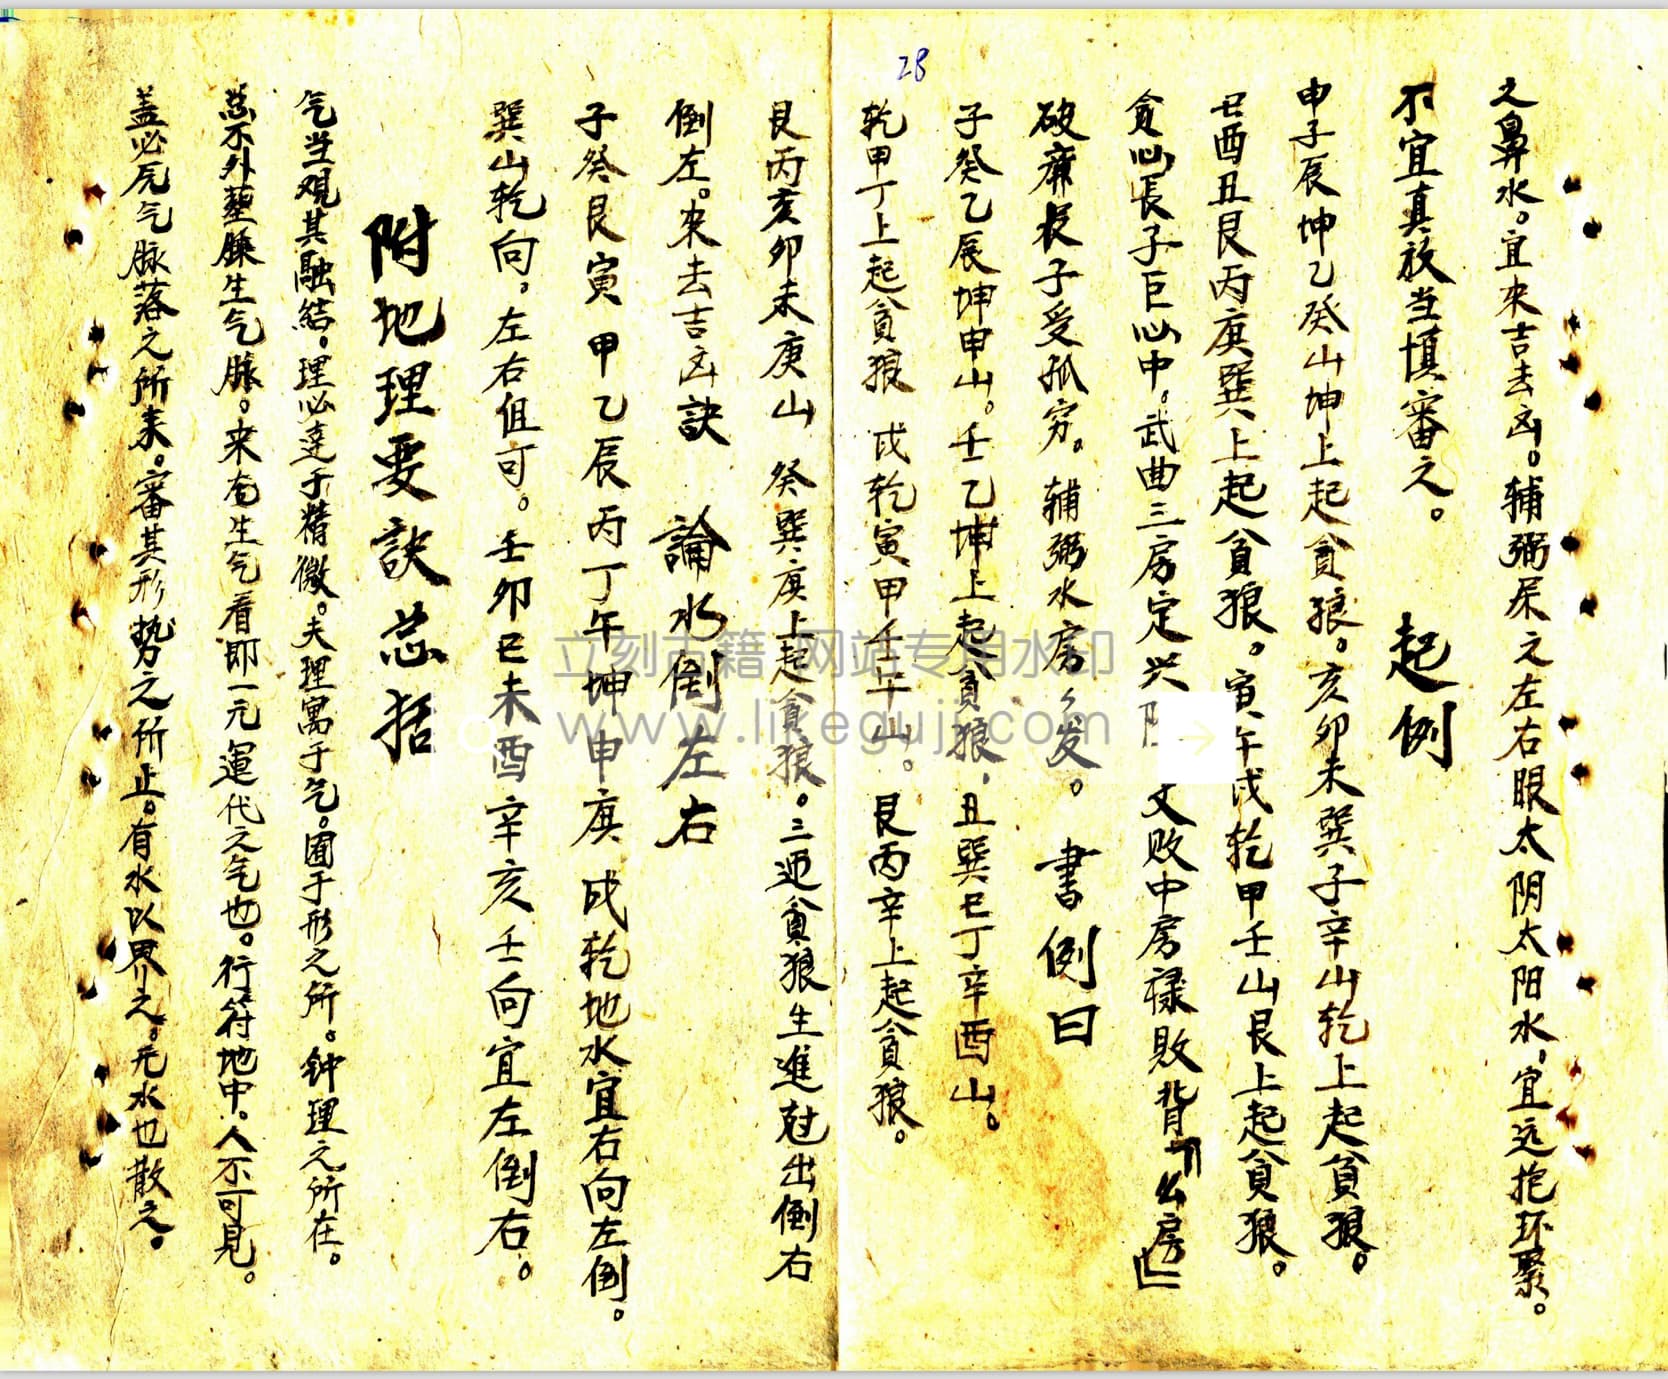 28
之鼻水。宜來吉去凶。辅弼屎之左右眼太阴太阳水，宜远抱环聚。
不宜真放当慎審之。 起例
申子辰坤乙癸山坤上起贪狼。亥卯未巽子辛山乾上起貧狼。
巳酉丑艮丙庚巽上起貧狼。寅午戌乾甲壬山艮上起貧狼。
貪心長子巨心中。武曲三房定兴 文败中房禄敗背「么房」
破廉長子受孤穷。辅弼水房々发。 書例曰
子癸乙辰坤申山。壬乙坤上起貧狼，丑巽巳丁辛酉山。
乾甲丁上起貧狼 戌乾寅甲壬午山。艮丙辛上起貧狼。
艮丙亥卯未庚山 癸巽庚上起貧狼。三迊貧狼生進尅出倒右
倒左。來去吉凶訣 論水倒左右
子癸艮寅甲乙辰丙丁午坤申庚戌乾地水宜右向左倒。
巽山乾向。左右伹可。壬卯巳未酉辛亥壬向宜左倒右。
附地理要訣总括
气当观其融結。理必达于精微。夫理寓于气。囿于形之所。钟理之所在。
总不外葬膁生气脉。來右生气看即一元運代之气也。行符地中。人不可見。
盖必凭气脉落之所来。審其形势之所止。有水以界之。无水也散之。
立刻古籍 网站专用水印
www.likeguji.com